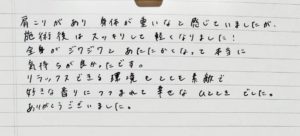 肩こりがあり 身体が重いなと感じていましたが、
施術後は スッキリして 軽くなりました！
全身が ジワジワと あたたかくなって 本当に
気持ちが良かったです。
リラックスできる環境もとても素敵で
好きな香りにつつまれて 幸せな ひととき でした。
ありがとうございました。